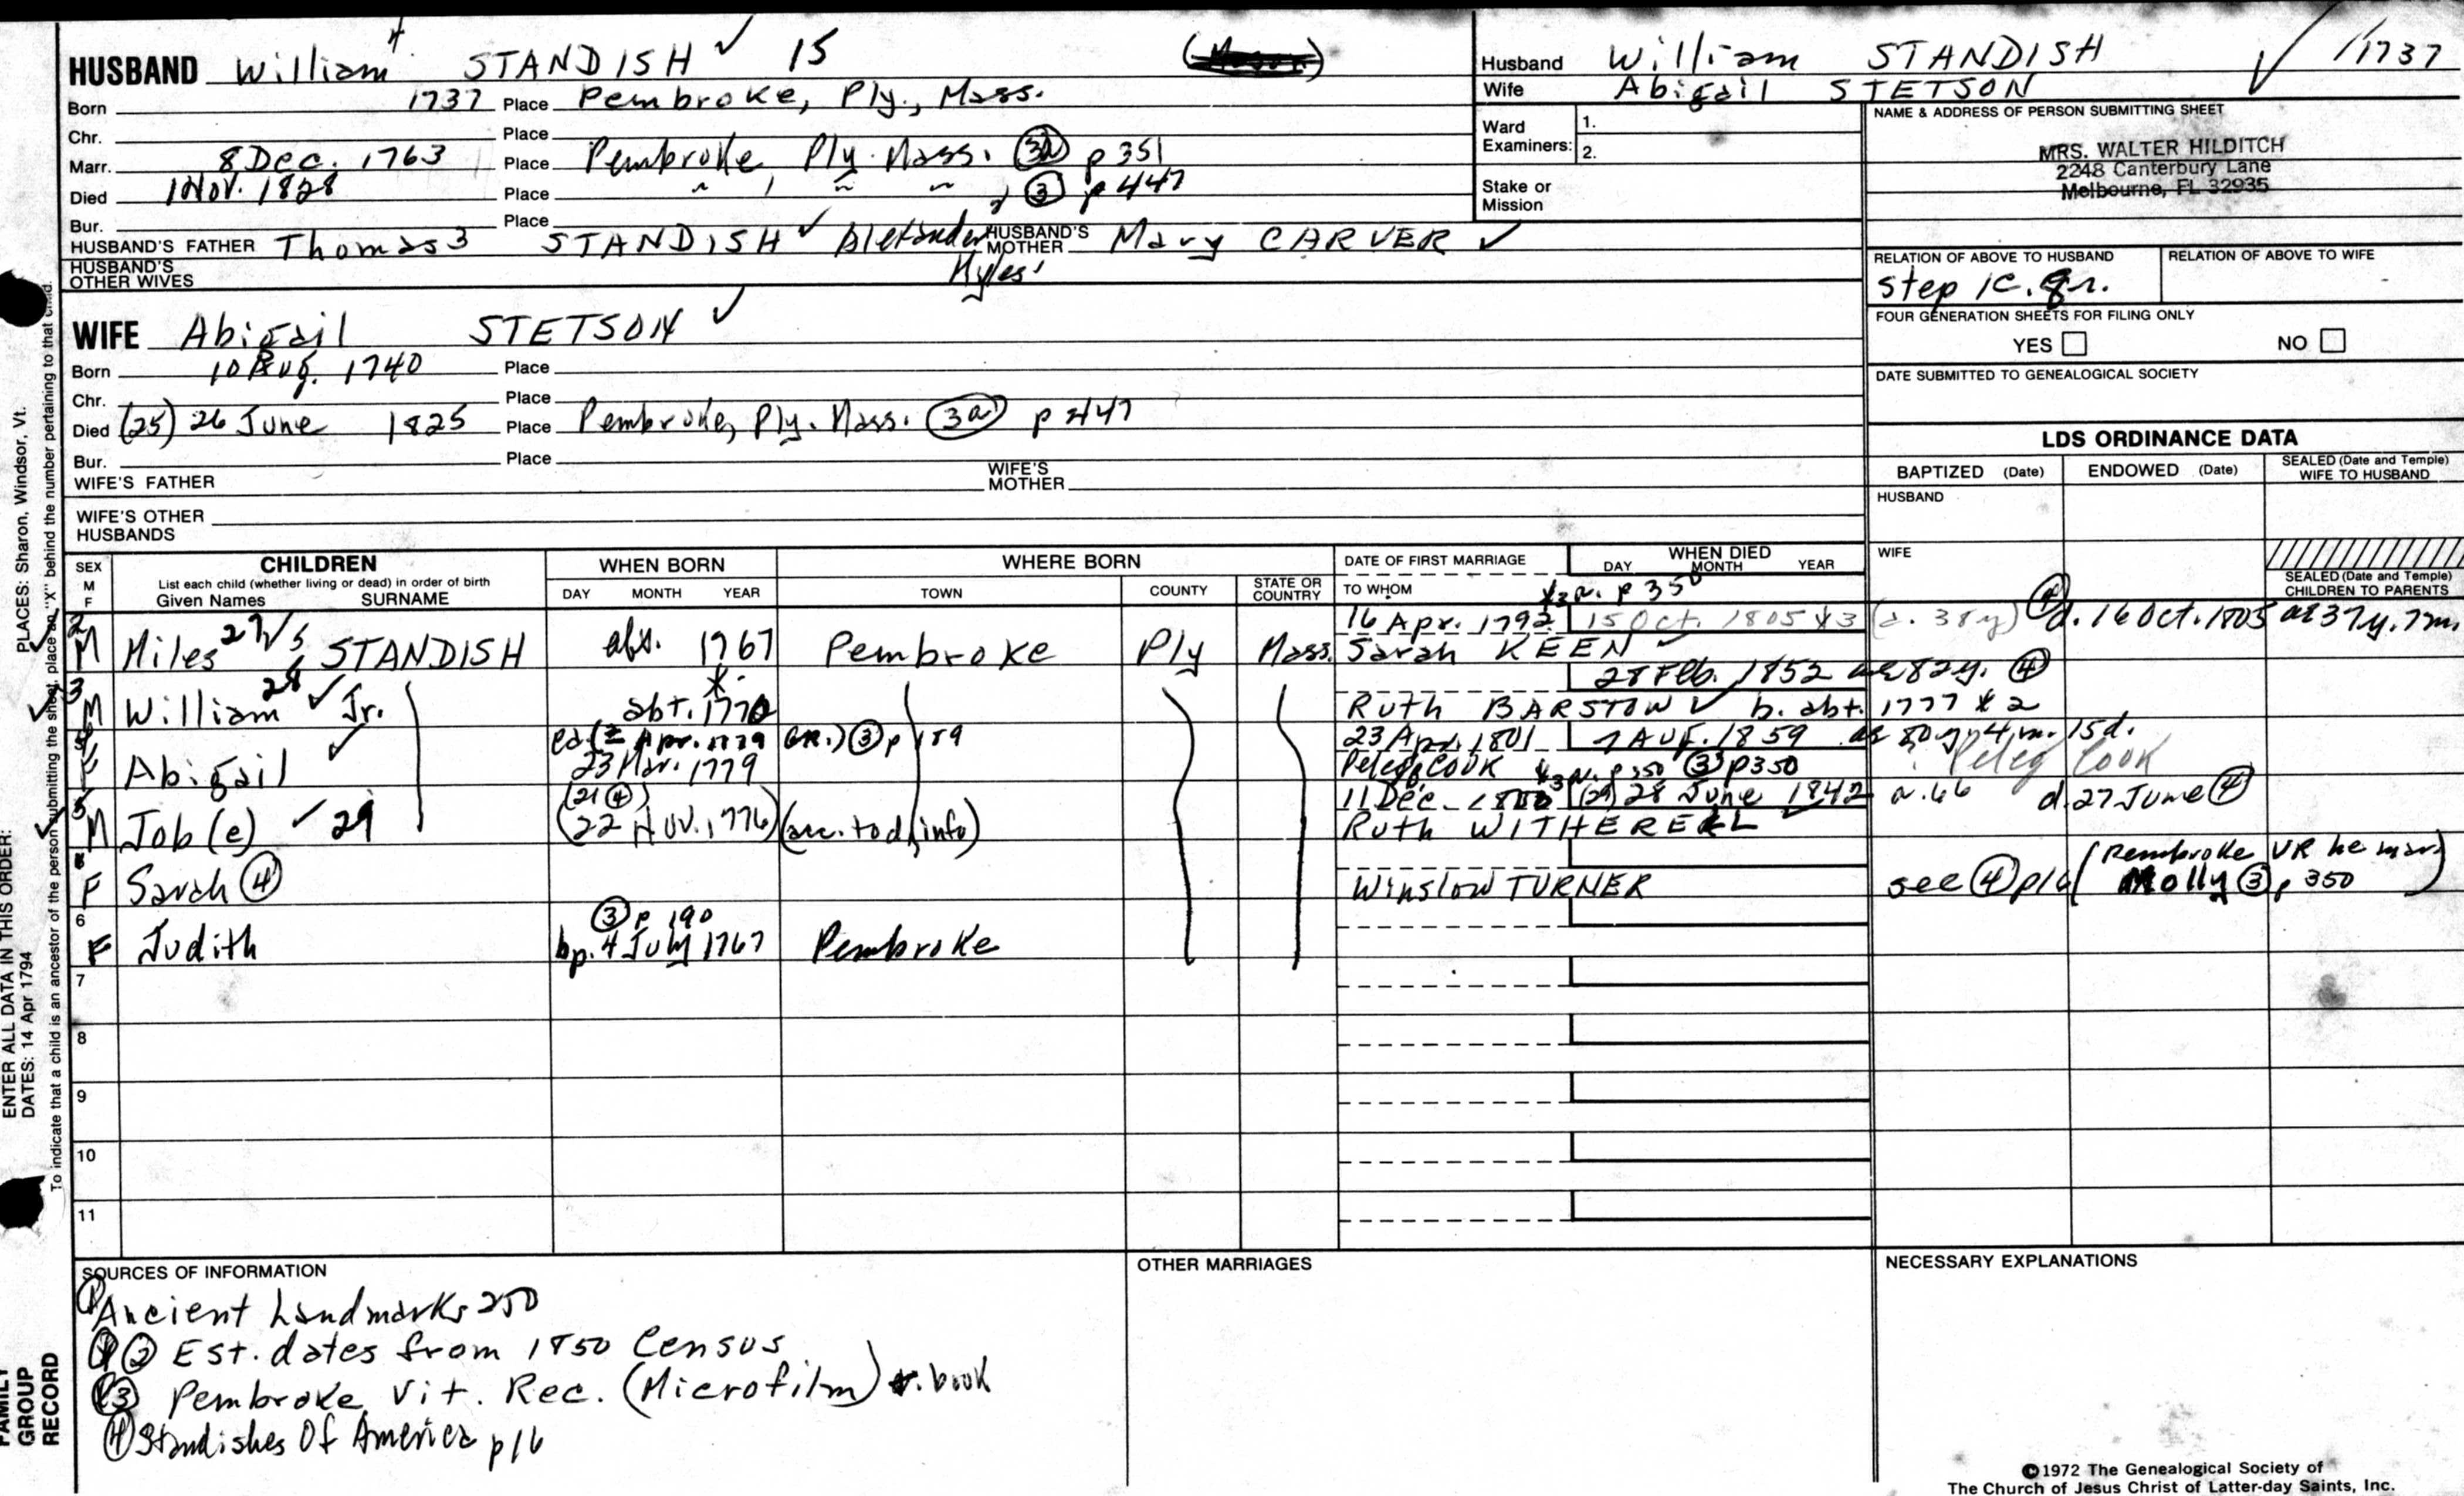 HUSBAND William 4 STANDISH ✓ 15
Born 1737 Place Pembroke, Ply., Mass.
Chr. Place
Marr. 8 Dec. 1763 Place Pembroke, Ply. Mass. (3a) p 351
Died 1 Nov. 1828 Place " , " " , (3) p 447
Bur. Place
HUSBAND'S FATHER Thomas 3 STANDISH ✓ Alexander HUSBAND'S MOTHER Mary CARVER ✓
HUSBAND'S OTHER WIVES Myles 1
WIFE Abigail STETSON ✓
Born 10 Aug. 1740 Place
Chr. Place
Died (25) 26 June 1825 Place Pembroke, Ply. Mass. (3a) p 447
Bur. Place
WIFE'S FATHER WIFE'S MOTHER
WIFE'S OTHER HUSBANDS
Husband William STANDISH ✓ 1737
Wife Abigail STETSON
Ward Examiners: 1.
2.
Stake or Mission
NAME & ADDRESS OF PERSON SUBMITTING SHEET
MRS. WALTER HILDITCH
2248 Canterbury Lane
Melbourne, FL 32935
RELATION OF ABOVE TO HUSBAND RELATION OF ABOVE TO WIFE
step 1C. gr.
FOUR GENERATION SHEETS FOR FILING ONLY
YES NO
DATE SUBMITTED TO GENEALOGICAL SOCIETY
LDS ORDINANCE DATA
BAPTIZED (Date) ENDOWED (Date) SEALED (Date and Temple) WIFE TO HUSBAND
HUSBAND
WIFE
SEALED (Date and Temple) CHILDREN TO PARENTS
SEX M F
CHILDREN
List each child (whether living or dead) in order of birth
Given Names SURNAME
WHEN BORN
DAY MONTH YEAR
WHERE BORN
TOWN COUNTY STATE OR COUNTRY
DATE OF FIRST MARRIAGE
TO WHOM
WHEN DIED
DAY MONTH YEAR
p 350
16 Apr. 1792 15 Oct. 1805 (a. 38 y) (4) d. 16 Oct. 1805 ae 37 y. 7 m.
2 M Miles 27 ✓ 5 STANDISH 1767 Pembroke Ply Mass. Sarah KEEN ✓
28 Feb. 1852 ae 82 y. (4)
3 M William 28 ✓ Jr. abt. 1770 Ruth BARSTOW ✓ b. abt. 1777 * 2
Apr. 1779 (3) p 189 23 Apr. 1801 7 Aug. 1859 ae 80 y 4 m. 15 d.
F Abigail ✓ 23 Mar. 1779 Peleg COOK p 350 (3) p 350 Peleg Cook
(21 (4)) 11 Dec. 28 June 1842 a. 66 d. 27 June (4)
5 M Job (e) ✓ 29 (22 Nov. 1776) (acc. to d. info) Ruth WITHERELL ✓
F Sarah (4) Winslow TURNER see (4) p 16 (Pembroke VR he mar. Molly (3) p 350)
6 (3) p 190
F Judith bp. 4 July 1767 Pembroke
7
8
9
10
11
SOURCES OF INFORMATION
(1) Ancient Landmarks 250
(2) Est. dates from 1850 Census
(3) Pembroke Vit. Rec. (Microfilm) book
(4) Standishes Of America p 16
OTHER MARRIAGES
NECESSARY EXPLANATIONS
©1972 The Genealogical Society of
The Church of Jesus Christ of Latter-day Saints, Inc.
PLACES: Sharon, Windsor, Vt.
ENTER ALL DATA IN THIS ORDER:
DATES: 14 Apr 1794
To indicate that a child is an ancestor of the person submitting the sheet, place an "X" behind the number pertaining to that child.
FAMILY GROUP RECORD